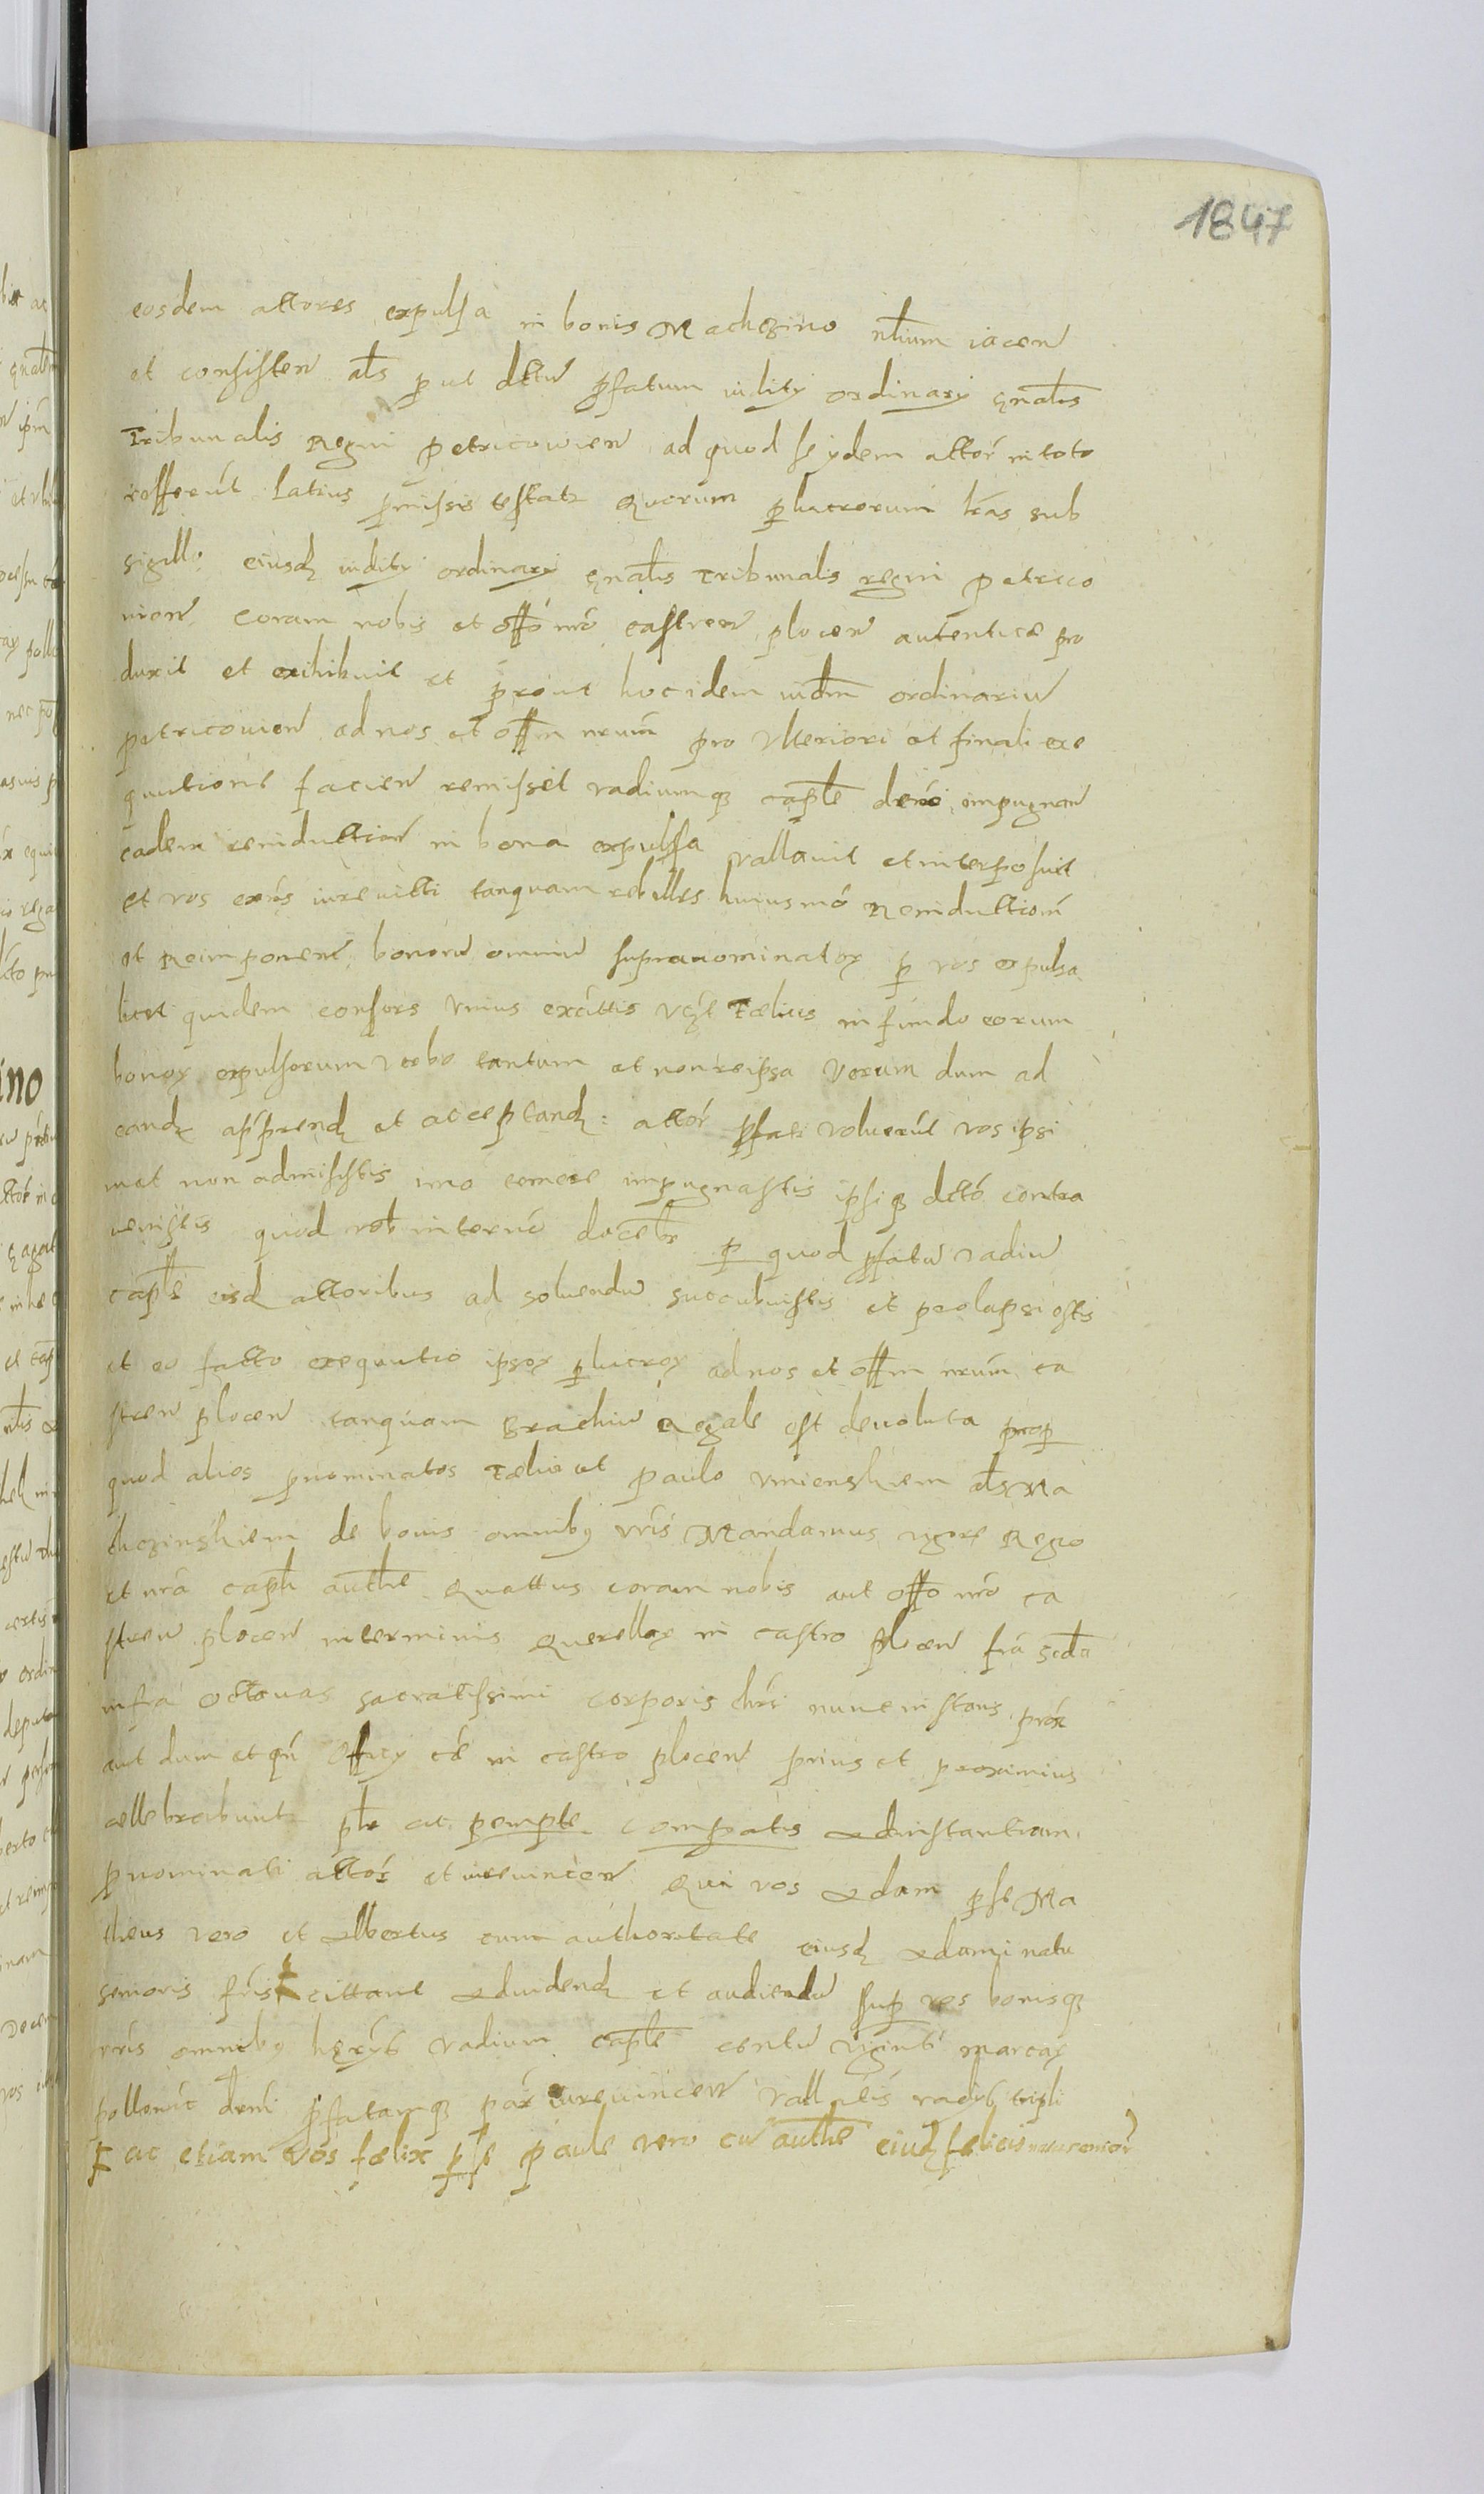 1847
eosdem actores expulsa in bonis Machczino nltium iacen
et consisten als put dctu pfatum iuditij ordinarij gnalis
Tribunalis Regni Petricovien ad quod se ijdem actor in toto
refferut latius pmissis testatr Quorum plucrorum lras sub
sigillo eiusd iuditij ordinarij gnalis Tribunalis regni Petrico
vien coram nobis et offo nro castren plocen autentice pro
duxit et exhibuit et prout hoc idem iudm ordinariu
petricovien ad nos et offm nrum pro Ulteriori et finali exe
quutione facien remissit vadiumq caple dero impugnan
eadem reinduction in bona expulsa vallavit et interposuit
et vos exns iurevicti tanquam rebelles huiusmo Reinductiom
et Reimponem bonoru omniu supranominator p vos expulsa
licet quidem consors unius excittis Felicis in fundo eorum
bonor expulsorum verbo tantum et non reipsa Verum dum ad
eand apprend et acceptand: actor pfati voluerut vos ipsi
mat non admisistis imo temere impugnastis ipsiq dcto contra
venistis quod vob in termo docebr p quod pfatu vadiu
caple eisd actoribus ad solvendu succubuistis et prolapsi estis
et eo facto exequutio ipsor plucror ad nos et offm nrum ca
stren plocen tanquam Brachiu Regale est devoluta prop
quod alios pnominatos Felice et Paulo Umienskiem als Ma
chczinskiem de bonis omnibq vris Mandamus vigore Regio
et nra caph authe Quattus coram nobis aut offo nro ca
stren plocen in terminis Querellar in castro plocen fra scda
infra octavas sacratissimi corporis chri nunc instans prox
aut dum et qn Officij cae in castro plocen prius et proximius
cellebrabunt plr ac pempte compatis Ad instantiam
pnominati actor et iurevincen Qui vos Adam p se Ma
theus vero et Albertus cum authoritate eiusd Adami natu
senioris fris cittant Ad vidend et audiendu sup vos bonisq
vris omnibq herib vadium caple centu viginti marcar
pollonic dni pfatamq par iurevincen vallatis vadyb tripli
ac etiam Vos felix p se paule vero cu authe eiusd felicis natu senior